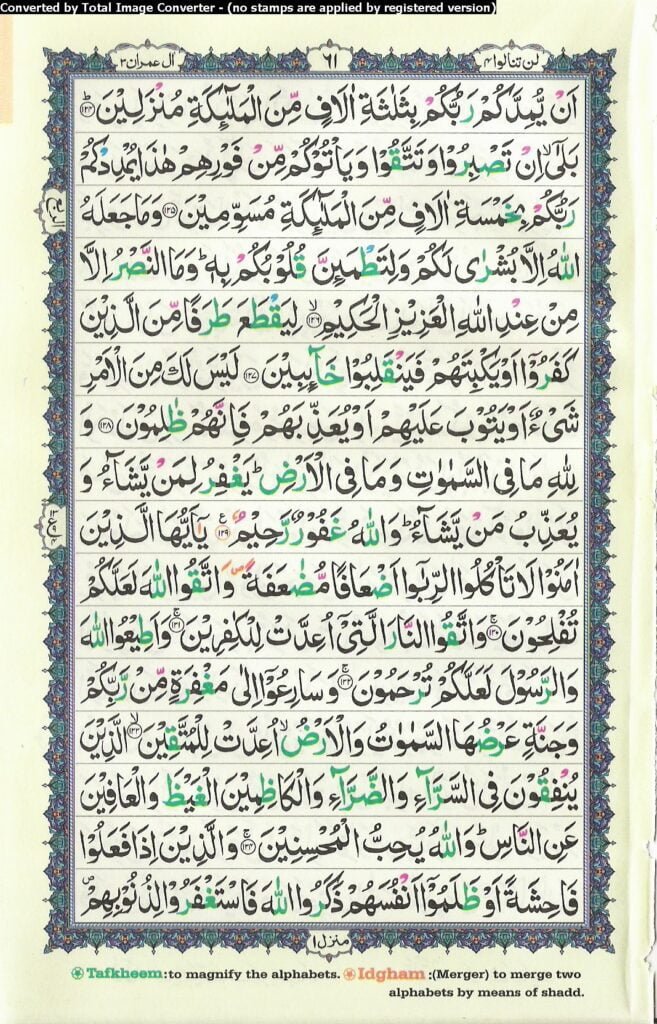 Converted by Total Image Converter - (no stamps are applied by registered version)
لن تنالوا ۴ ۶۱ اٰل عمرٰن ۳
اَنْ يُّمِدَّكُمْ رَبُّكُمْ بِثَلٰثَةِ اٰلَافٍ مِّنَ الْمَلٰٓئِكَةِ مُنْزَلِيْنَ ؕ﴿۱۲۴﴾
بَلٰٓى ۙ اِنْ تَصْبِرُوْا وَتَتَّقُوْا وَيَاْتُوْكُمْ مِّنْ فَوْرِهِمْ هٰذَا يُمْدِدْكُمْ
رَبُّكُمْ بِخَمْسَةِ اٰلَافٍ مِّنَ الْمَلٰٓئِكَةِ مُسَوِّمِيْنَ ﴿۱۲۵﴾ وَمَا جَعَلَهُ
اللّٰهُ اِلَّا بُشْرٰى لَكُمْ وَلِتَطْمَئِنَّ قُلُوْبُكُمْ بِهٖ ؕ وَمَا النَّصْرُ اِلَّا
مِنْ عِنْدِ اللّٰهِ الْعَزِيْزِ الْحَكِيْمِ ۙ﴿۱۲۶﴾ لِيَقْطَعَ طَرَفًا مِّنَ الَّذِيْنَ
كَفَرُوْۤا اَوْ يَكْبِتَهُمْ فَيَنْقَلِبُوْا خَآئِبِيْنَ ﴿۱۲۷﴾ لَيْسَ لَكَ مِنَ الْاَمْرِ
شَىْءٌ اَوْ يَتُوْبَ عَلَيْهِمْ اَوْ يُعَذِّبَهُمْ فَاِنَّهُمْ ظٰلِمُوْنَ ﴿۱۲۸﴾ وَ
لِلّٰهِ مَا فِى السَّمٰوٰتِ وَمَا فِى الْاَرْضِ ؕ يَغْفِرُ لِمَنْ يَّشَآءُ وَ
يُعَذِّبُ مَنْ يَّشَآءُ ؕ وَاللّٰهُ غَفُوْرٌ رَّحِيْمٌ ﴿۱۲۹﴾ يٰۤاَيُّهَا الَّذِيْنَ
اٰمَنُوْا لَا تَاْكُلُوا الرِّبٰۤوا اَضْعَافًا مُّضٰعَفَةً ۪ وَاتَّقُوا اللّٰهَ لَعَلَّكُمْ
تُفْلِحُوْنَ ۚ﴿۱۳۰﴾ وَاتَّقُوا النَّارَ الَّتِىْۤ اُعِدَّتْ لِلْكٰفِرِيْنَ ۚ﴿۱۳۱﴾ وَاَطِيْعُوا اللّٰهَ
وَالرَّسُوْلَ لَعَلَّكُمْ تُرْحَمُوْنَ ۚ﴿۱۳۲﴾ وَسَارِعُوْۤا اِلٰى مَغْفِرَةٍ مِّنْ رَّبِّكُمْ
وَجَنَّةٍ عَرْضُهَا السَّمٰوٰتُ وَالْاَرْضُ ۙ اُعِدَّتْ لِلْمُتَّقِيْنَ ۙ﴿۱۳۳﴾ الَّذِيْنَ
يُنْفِقُوْنَ فِى السَّرَّآءِ وَالضَّرَّآءِ وَالْكَاظِمِيْنَ الْغَيْظَ وَالْعَافِيْنَ
عَنِ النَّاسِ ؕ وَاللّٰهُ يُحِبُّ الْمُحْسِنِيْنَ ۚ﴿۱۳۴﴾ وَالَّذِيْنَ اِذَا فَعَلُوْا
فَاحِشَةً اَوْ ظَلَمُوْۤا اَنْفُسَهُمْ ذَكَرُوا اللّٰهَ فَاسْتَغْفَرُوْا لِذُنُوْبِهِمْ
منزل ۱
Tafkheem:to magnify the alphabets. Idgham :(Merger) to merge two
alphabets by means of shadd.